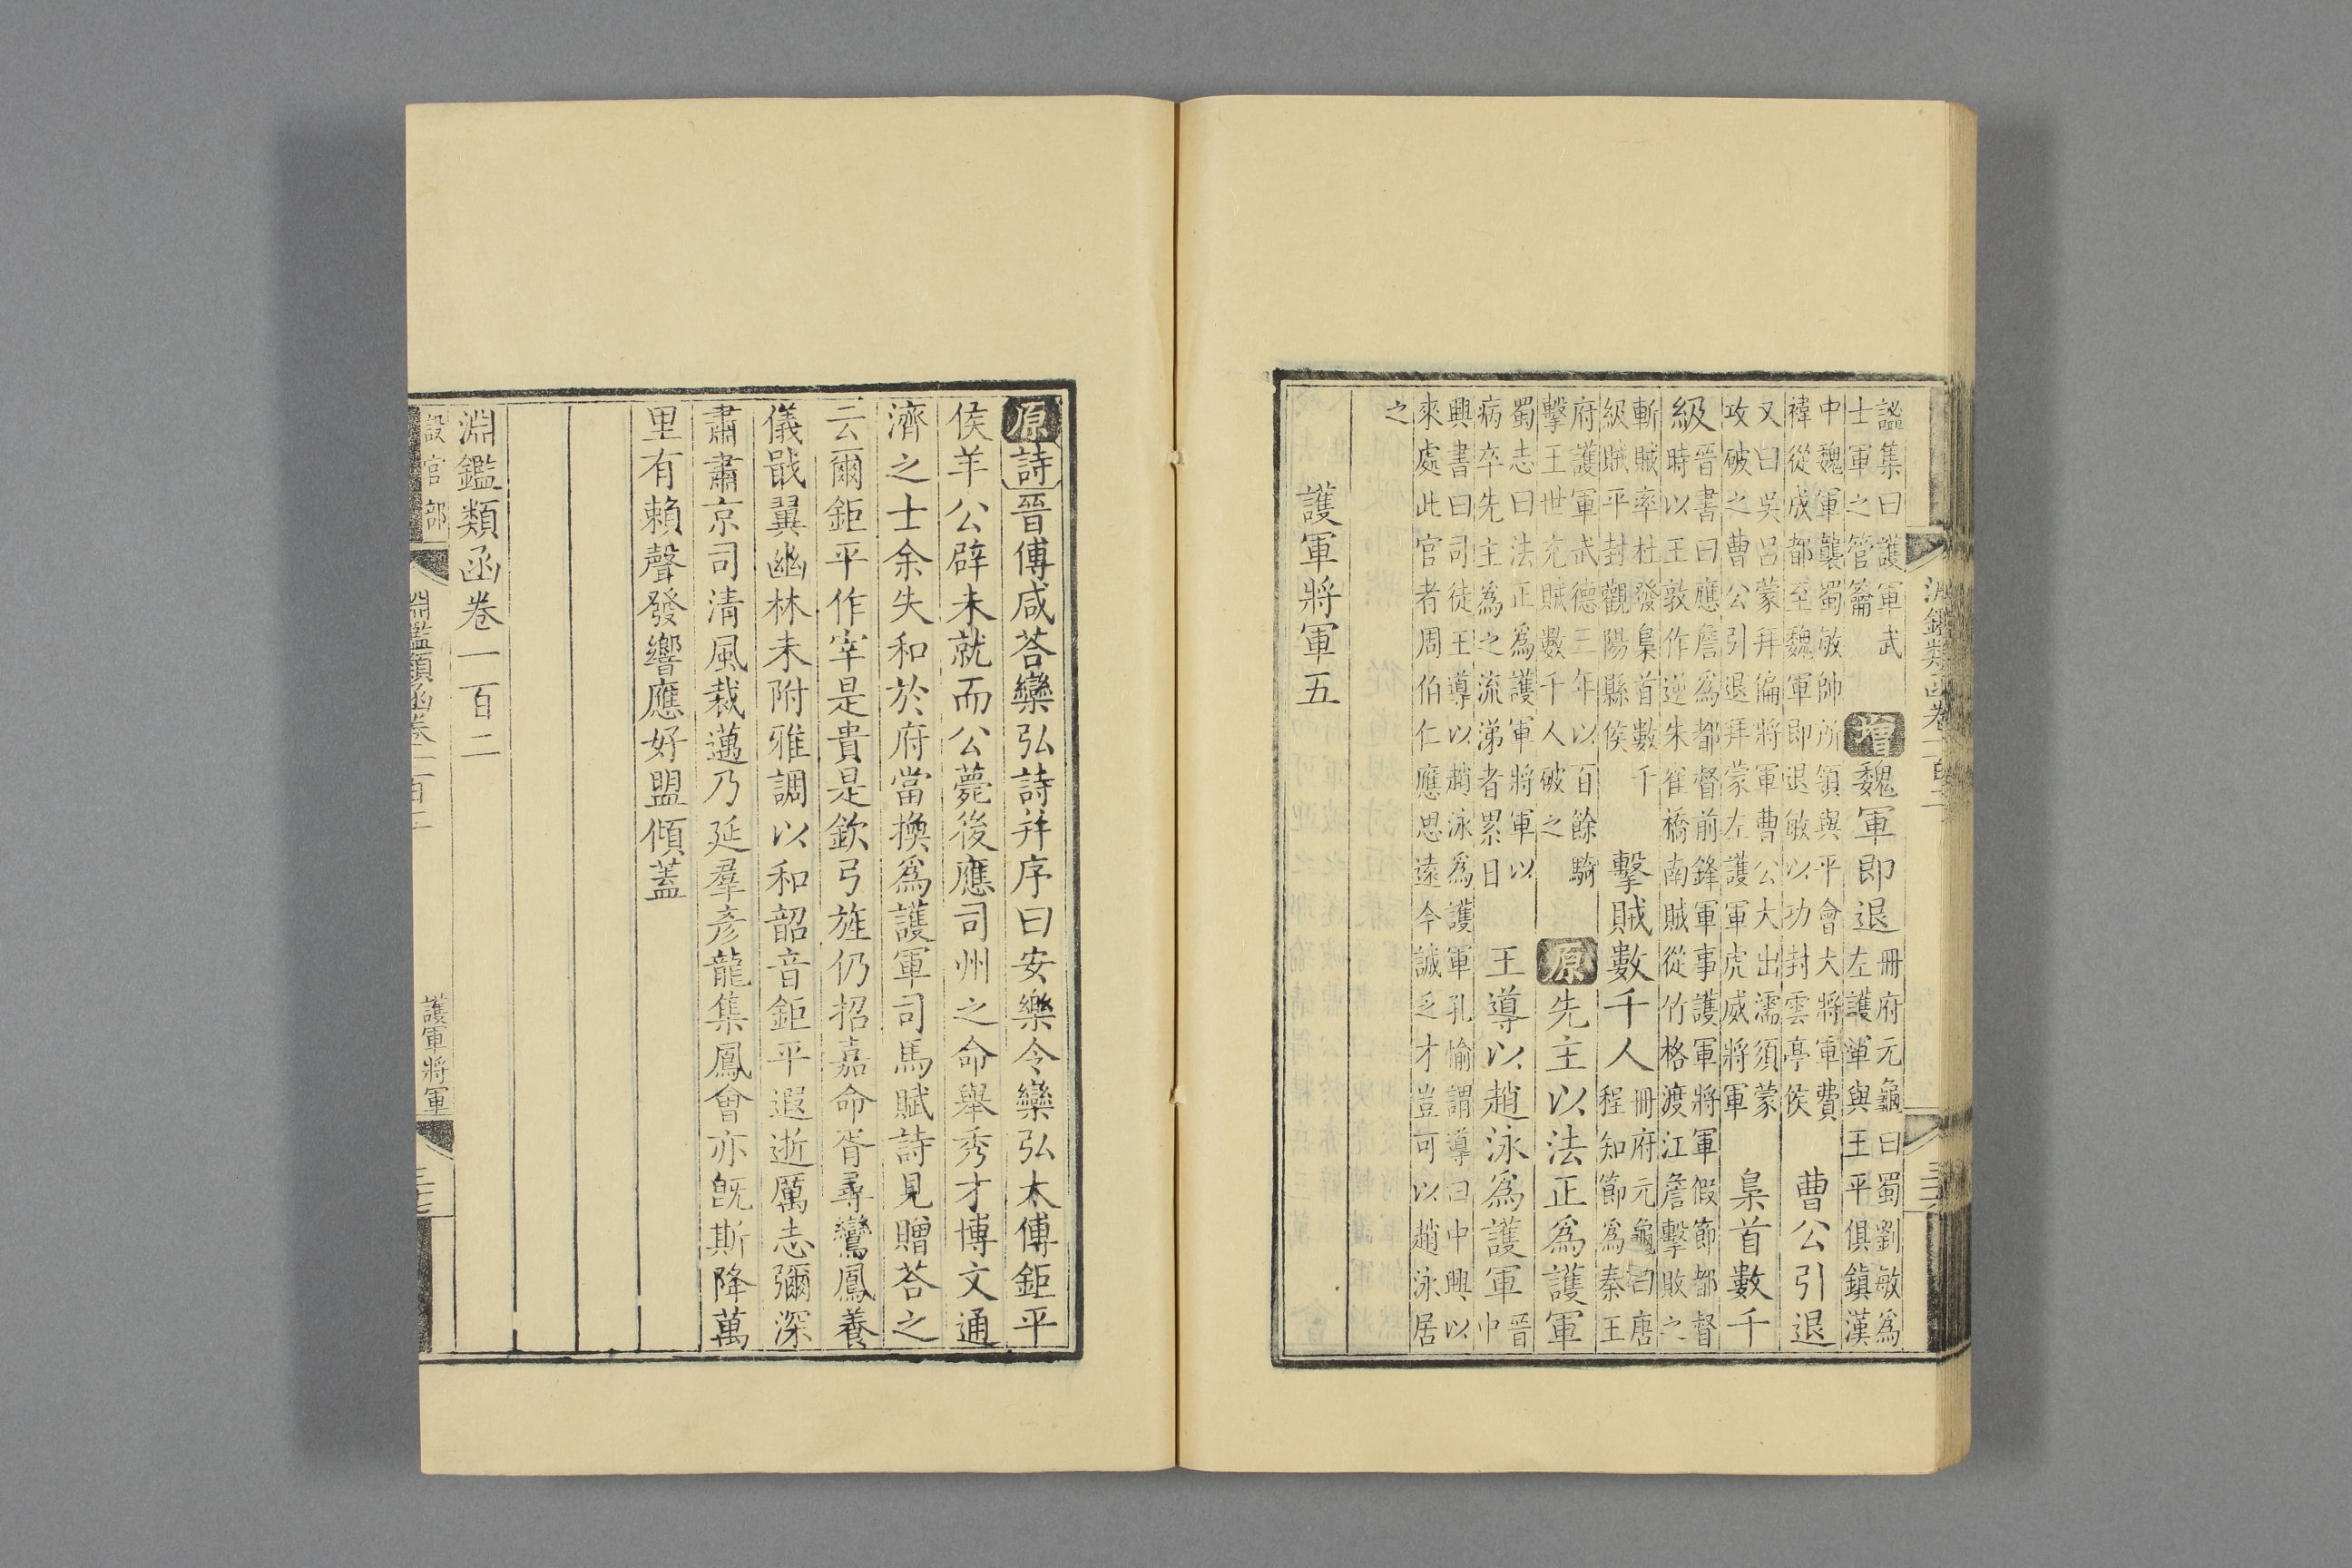 淵鑑類函卷一百二
謐集曰護軍武
士軍之管籥
增魏軍即退
冊府元龜曰蜀劉敏爲
左護軍與王平俱鎮漢
中魏軍襲蜀敏帥所領與平會大將軍費
禕從成都至魏軍即退敏以功封雲亭侯
曹公引退
又曰吳呂蒙拜偏將軍曹公大出濡須蒙
攻破之曹公引退拜蒙左護軍虎威將軍
梟首數千
級
晉書曰應詹爲都督前鋒軍事護軍將軍假節都督
時以王敦作逆朱雀橋南賊從竹格渡江詹擊敗之
斬賊率杜發梟首數千
級賊平封觀陽縣侯
擊賊數千人
冊府元龜曰唐
程知節爲秦王
府護軍武德三年以百餘騎
擊王世充賊數千人破之
原先主以法正爲護軍
蜀志曰法正爲護軍將軍以
病卒先主爲之流涕者累日
王導以趙泳爲護軍
晉
中
興書曰司徒王導以趙泳爲護軍孔愉謂導曰中興以
來處此官者周伯仁應思遠今誠乏才豈可以趙泳居
之
護軍將軍五
原詩晉傅咸荅欒弘詩并序曰安樂令欒弘太傅鉅平
侯羊公辟未就而公薨後應司州之命舉秀才博文通
濟之士余失和於府當換爲護軍司馬賦詩見贈荅之
云爾鉅平作宰是貴是欽弓旌仍招嘉命胥尋鸞鳳養
儀戢翼幽林未附雅調以和韶音鉅平遐逝厲志彌深
肅肅京司清風裁邁乃延羣彥龍集鳳會亦旣斯降萬
里有賴聲發響應好盟傾蓋
淵鑑類函卷一百二
設官部
淵鑑類函卷一百二
護軍將軍